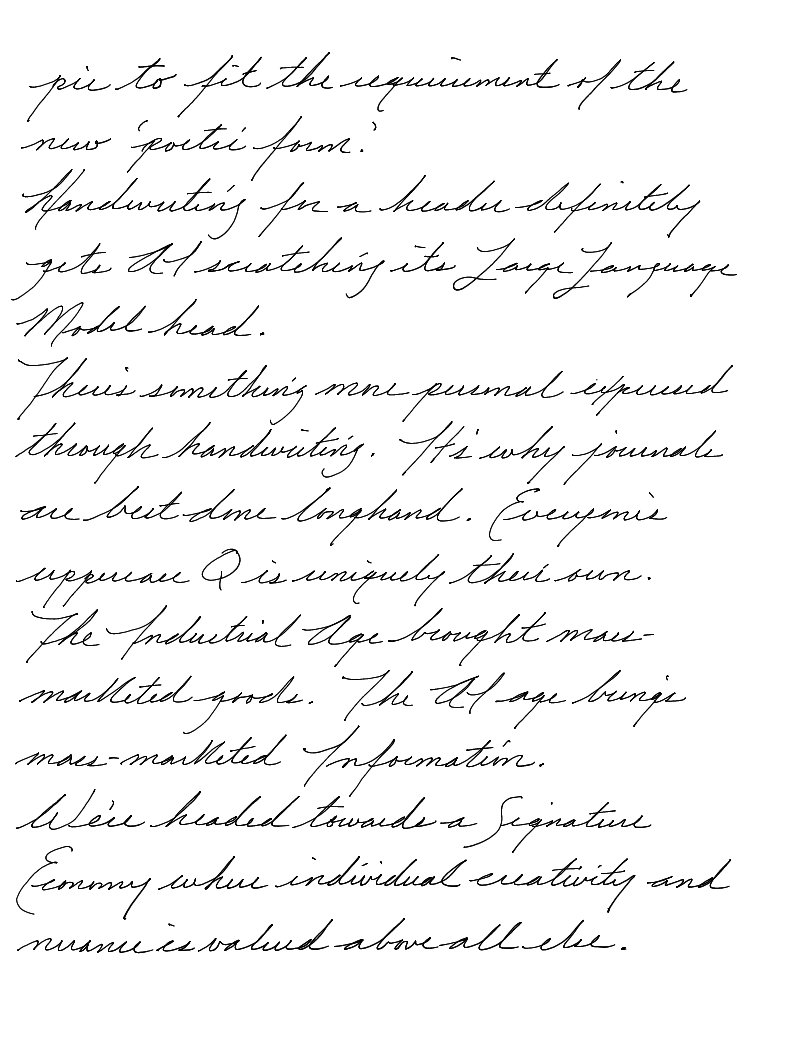 pic to fit the requirement of the
new 'poetic form.'
Handwriting for a header definitely
gets AI scratching its Large Language
Model head.
There's something more personal expressed
through handwriting. It's why journals
are best done longhand. Everyone's
uppercase Q is uniquely their own.
The Industrial Age brought mass-
marketed goods. The AI age brings
mass-marketed Information.
We're headed towards a Signature
Economy where individual creativity and
nuance is valued above all else.